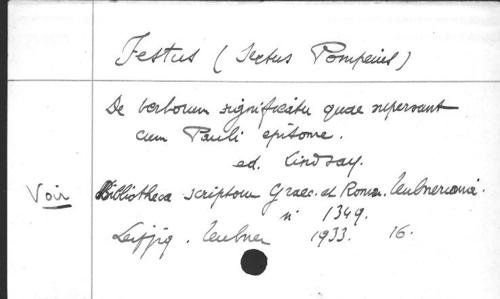 Festus (Sextus Pompeius)
De verborum significatu quae supersunt
cum Pauli epitome.
ed. Lindsay.
Voir Bibliotheca scriptorum Graec. et Roman. Teubneriana.
n° 1349.
Leipzig. Teubner 1933. 16.